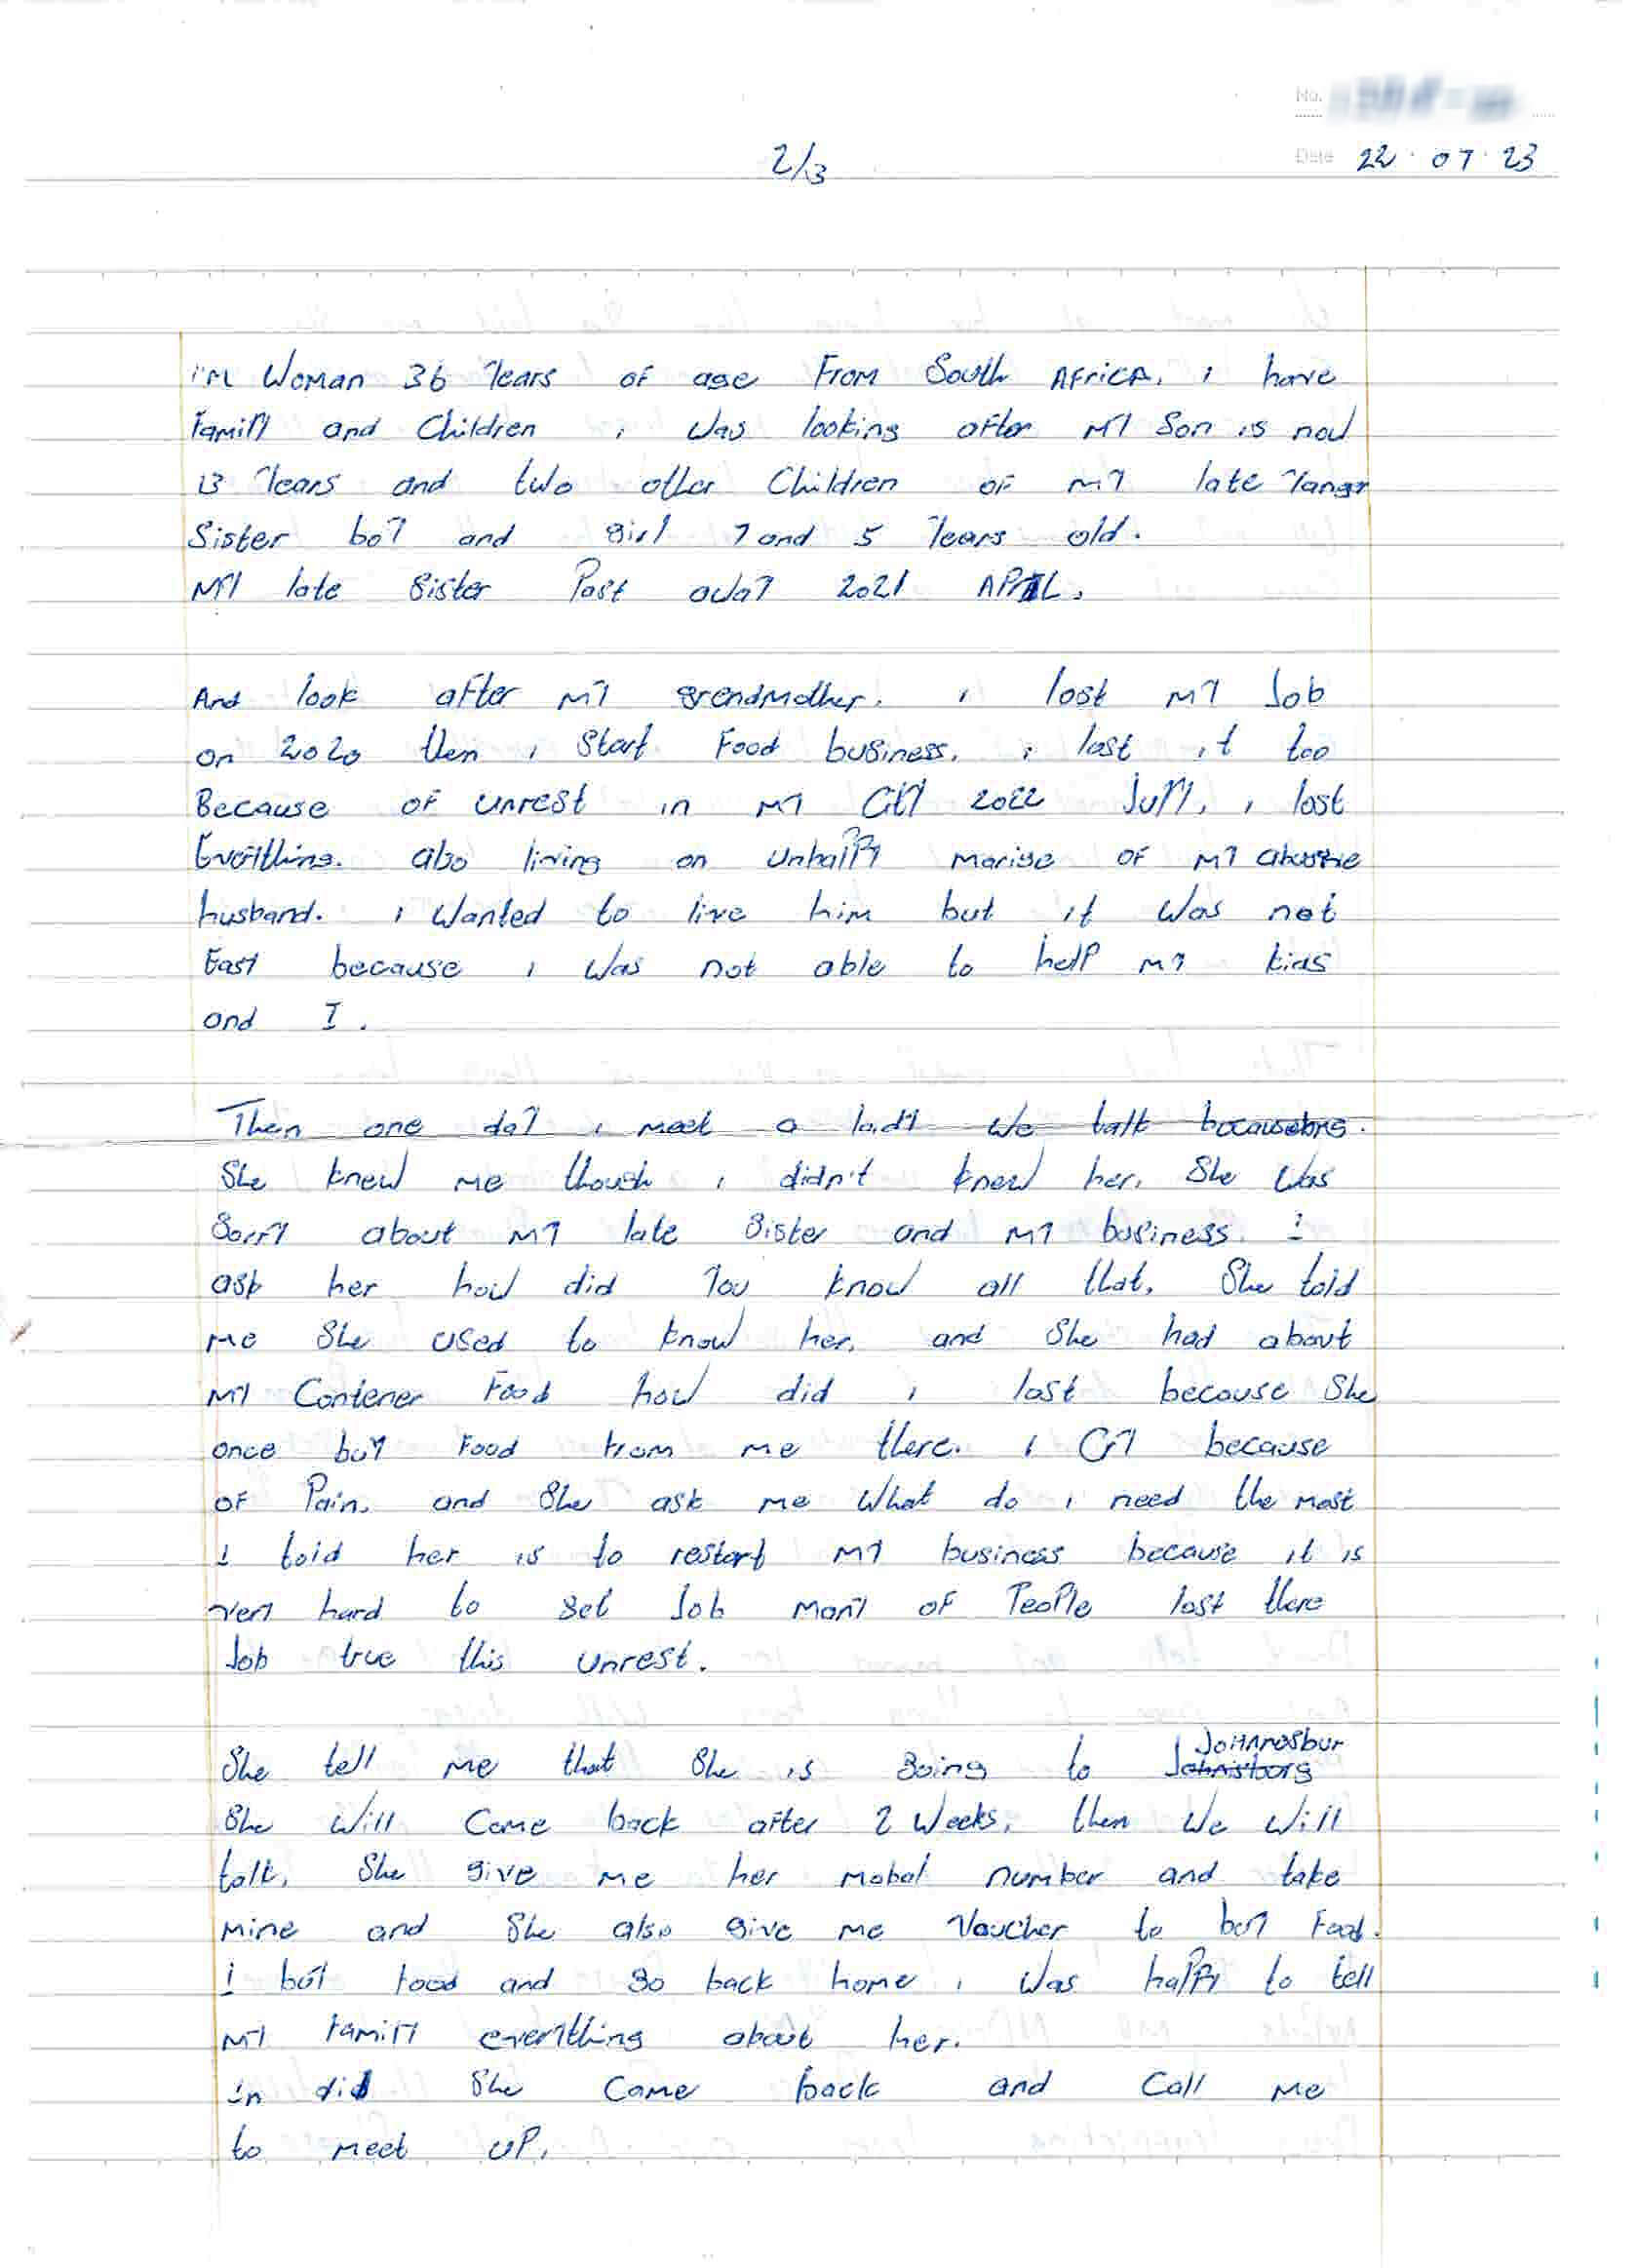 No.
2/3
Date 22 · 07 · 23
I'M Woman 36 Years of age From South AFricA. i have
Family and Children i was looking after My Son is now
13 Years and two other Children of my late Yangr
Sister boy and girl 7 and 5 Years old.
My late Sister Past away 2021 APRIL.
And look after my grendmother. i lost my Job
on 2020 then i Start Food business. i last it too
Because of unrest in my City 2022 July, i lost
Everything. also living on unhappy marige of my abusive
husband. i wanted to live him but it was not
Easy because i was not able to help my kids
and I.
Then one day i meet a lady we talk
She knew me though i didn't knew her. She was
Sorry about my late Sister and my business. I
ask her how did You know all that. She told
me She used to know her. and She had about
my Contener Food how did i last because She
once buy Food from me there. I Cry because
of Pain. and She ask me What do i need the most
I told her is to restart my business because it is
very hard to get Job many of People lost there
Job true this unrest.
She tell me that She is going to Johnisborg JoHAnosbur
She will Come back after 2 weeks, then we will
talk. She give me her mobal number and take
mine and She also give me Voucher to buy Food.
I buy food and go back home i was happy to tell
my Family everything about her.
in did She Came back and Call me
to meet up.